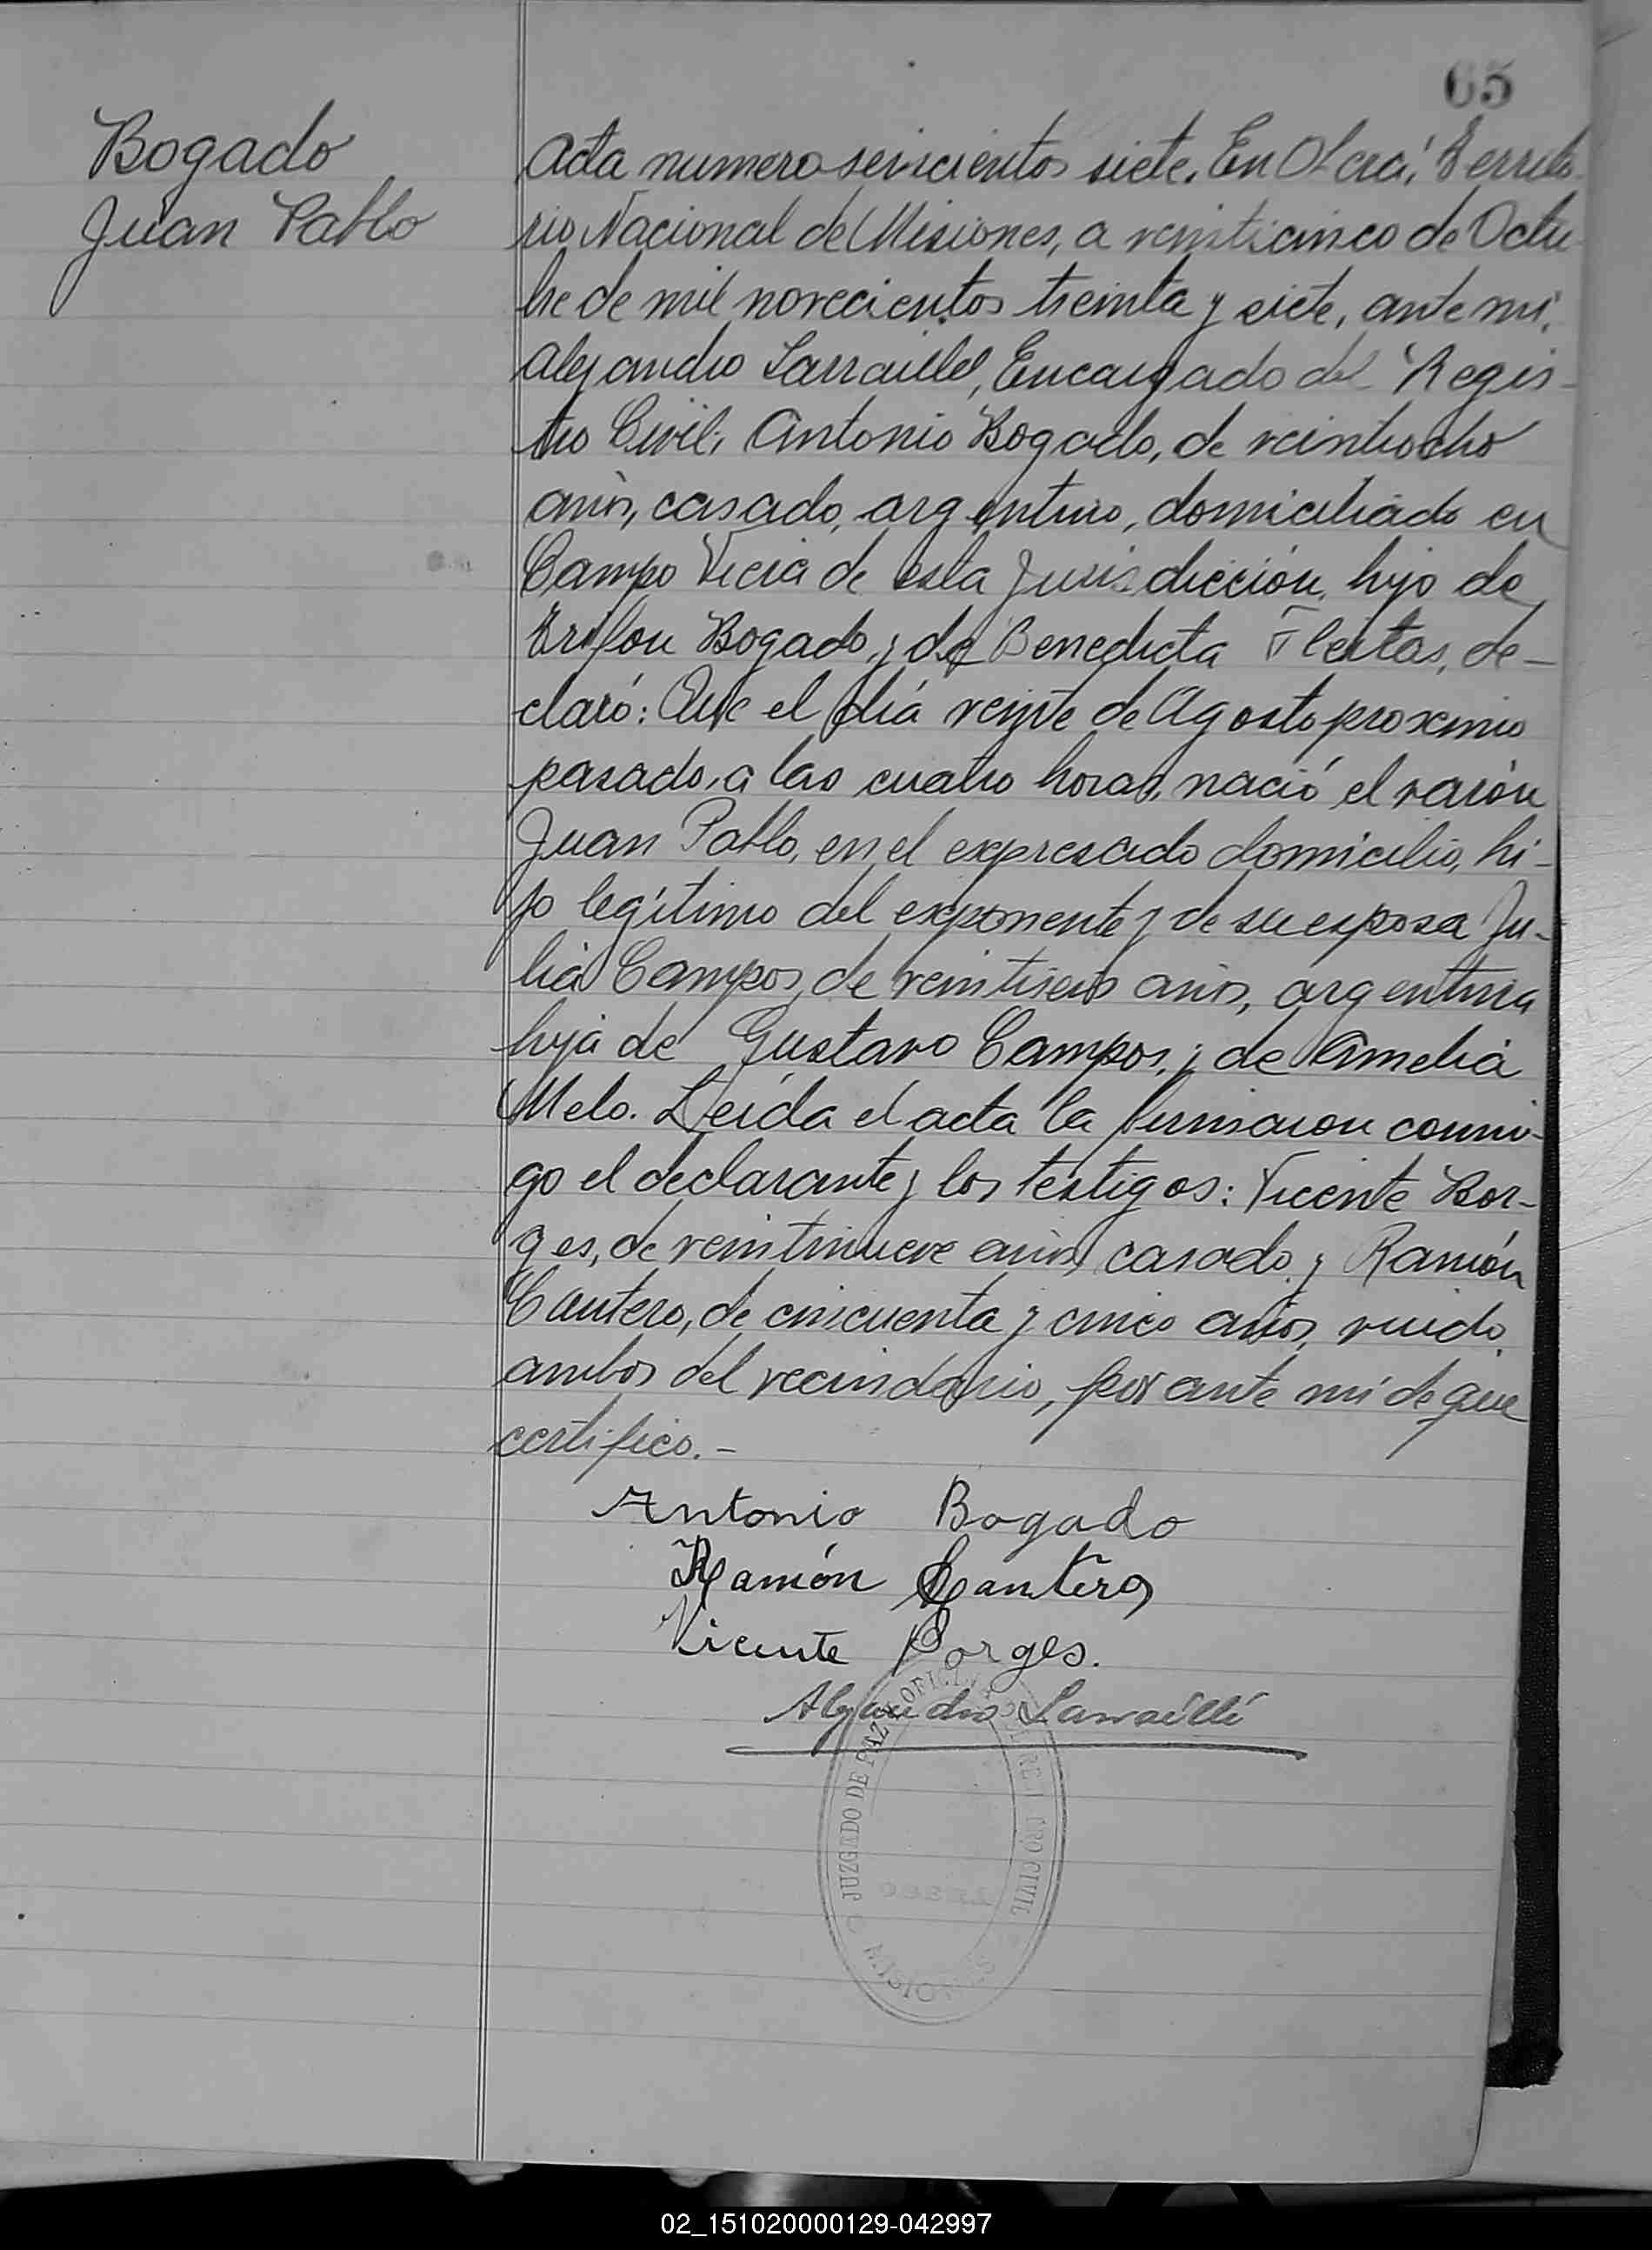 65
Bogado
Juan Pablo
Acta numero seiscientos siete. En Oberá, Territo-
rio Nacional de Misiones, a veinticinco de Octu-
bre de mil novecientos treinta y siete, ante mí,
Alejandro Larraillet, Encargado del Regis-
tro Civil, Antonio Bogado, de veintiocho
años, casado, argentino, domiciliado en
Campo Viera de esta Jurisdicción, hijo de
Bogado, y de Benedicta Fleitas, de-
claró: Que el día veinte de Agosto proximo
pasado, a las cuatro horas, nació el varón
Juan Pablo, en el expresado domicilio, hi-
jo legítimo del exponente y de su esposa Ju-
lia Campos, de veintiseis años, argentina
hija de Gustavo Campos, y de Amelia
Melo. Leída el acta la firmaron conmi-
go el declarante y los testigos: Vicente Bor-
ges, de veintinueve años, casado, y Ramón
Cantero, de cincuenta y cinco años, viudo,
ambos del vecindario, por ante mí de que
certifico.-
Antonio Bogado
Ramón Cantero
Vicente Borges.
Alejandro
JUZGADO DE PAZ
CIVIL
MISIONES
02_151020000129-042997